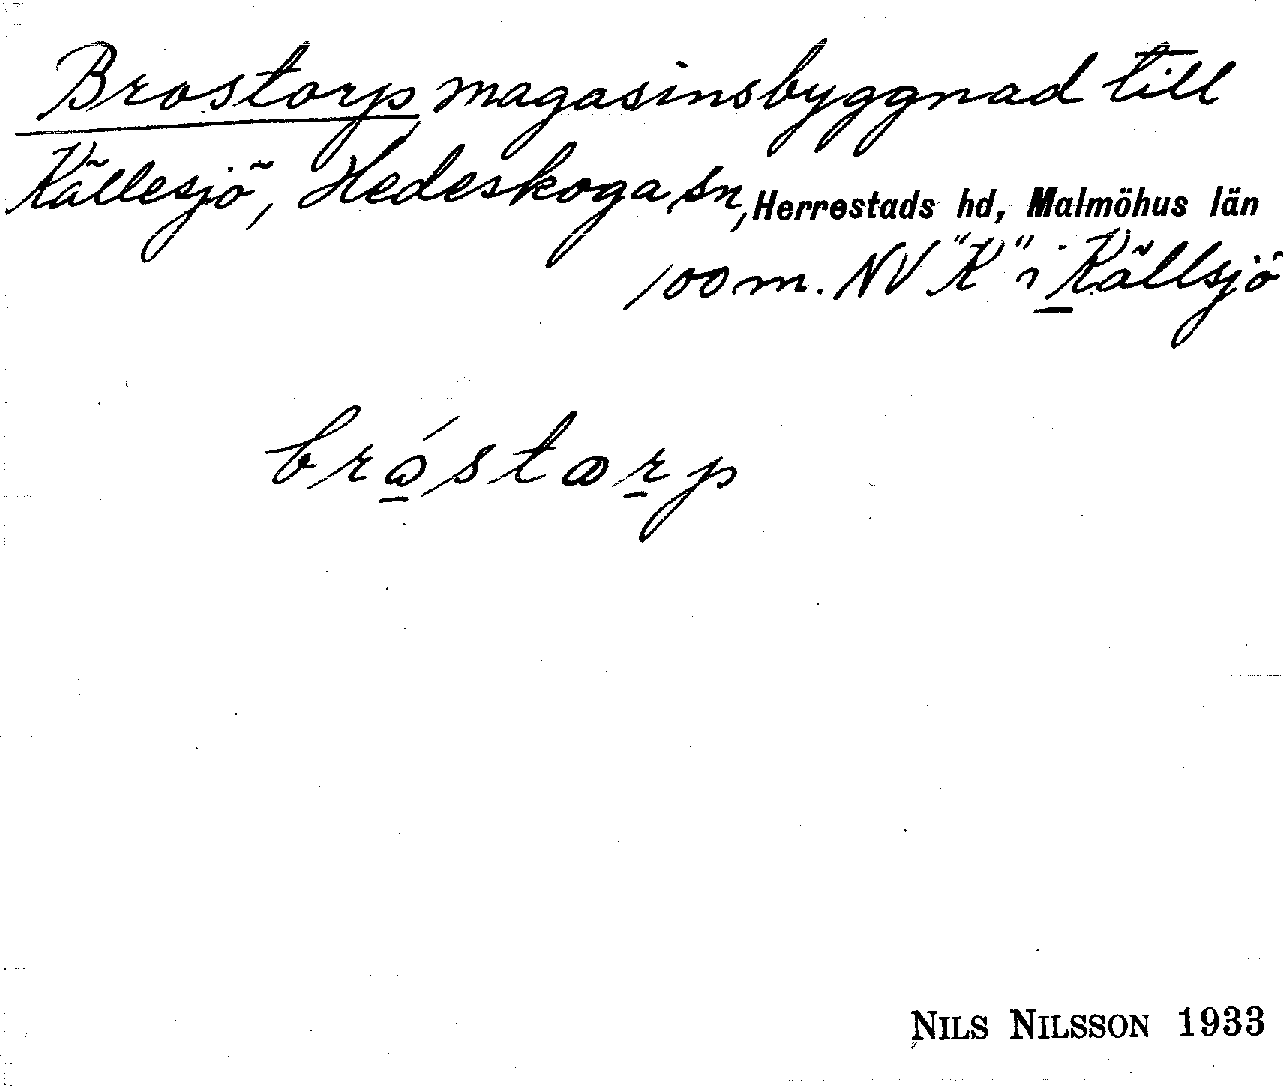 Brostorp magasinsbyggnad till
Källesjö, Hedeskoga sn, Herrestads hd, Malmöhus län
100 m. NV "K" i Källsjö
bró̱stꝏṟp
NILS NILSSON 1933